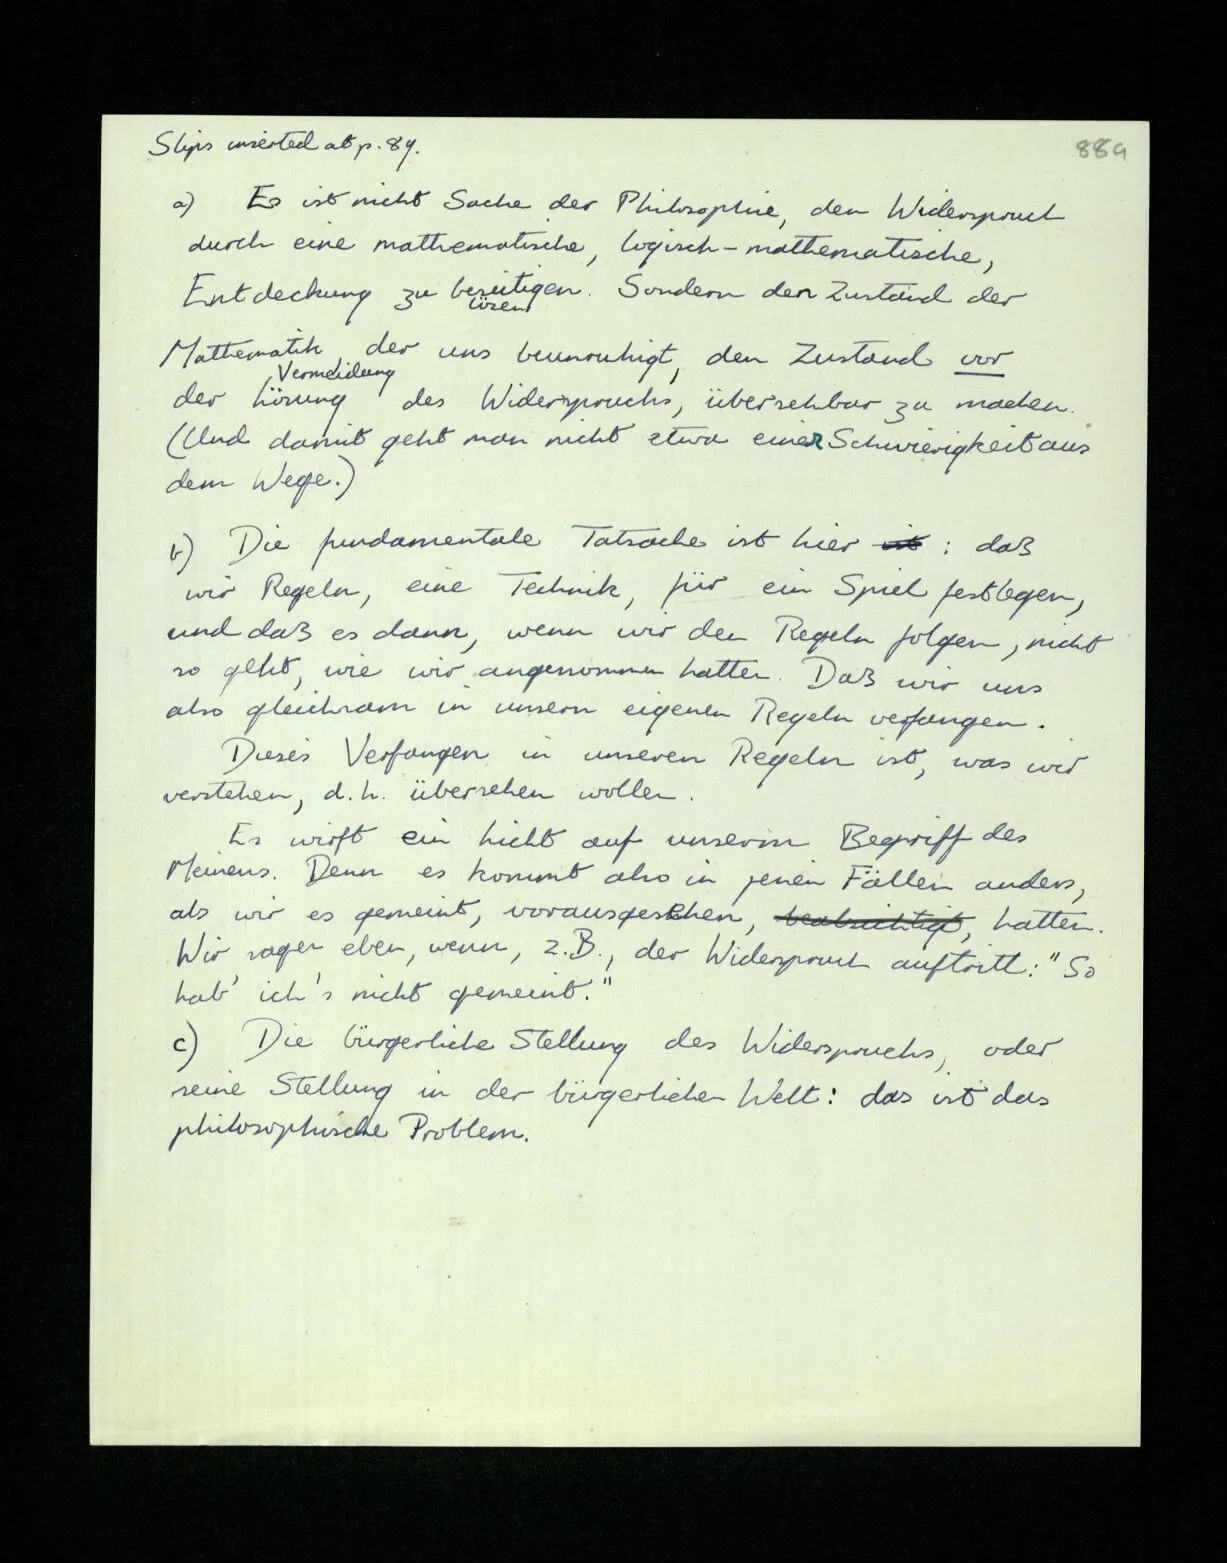 Slips inserted at p. 89.
88a
a) Es ist nicht Sache der Philosophie, den Widerspruch
durch eine mathematische, logisch-mathematische,
Entdeckung zu beseitigen. Sondern den Zustand der
lösen
Mathematik, der uns beunruhigt, den Zustand vor
Vermeidung
der Lösung des Widerspruchs, übersehbar zu machen.
(Und damit geht man nicht etwa einer Schwierigkeit aus
dem Wege.)
b) Die fundamentale Tatsache ist hier ist : daß
wir Regeln, eine Technik, für ein Spiel festlegen,
und daß es dann, wenn wir den Regeln folgen, nicht
so geht, wie wir angenommen hatten. Daß wir uns
also gleichsam in unsern eigenen Regeln verfangen.
Dieses Verfangen in unseren Regeln ist, was wir
verstehen, d.h. übersehen wollen.
Es wirft ein Licht auf unserm Begriff des
Meinens. Denn es kommt also in jenen Fällen anders,
als wir es gemeint, vorausgesehen, beabsichtigt, hatten.
Wir sagen eben, wenn, z.B., der Widerspruch auftritt: "So
hab' ich's nicht gemeint."
c) Die bürgerliche Stellung des Widerspruchs, oder
seine Stellung in der bürgerlichen Welt: das ist das
philosophische Problem.